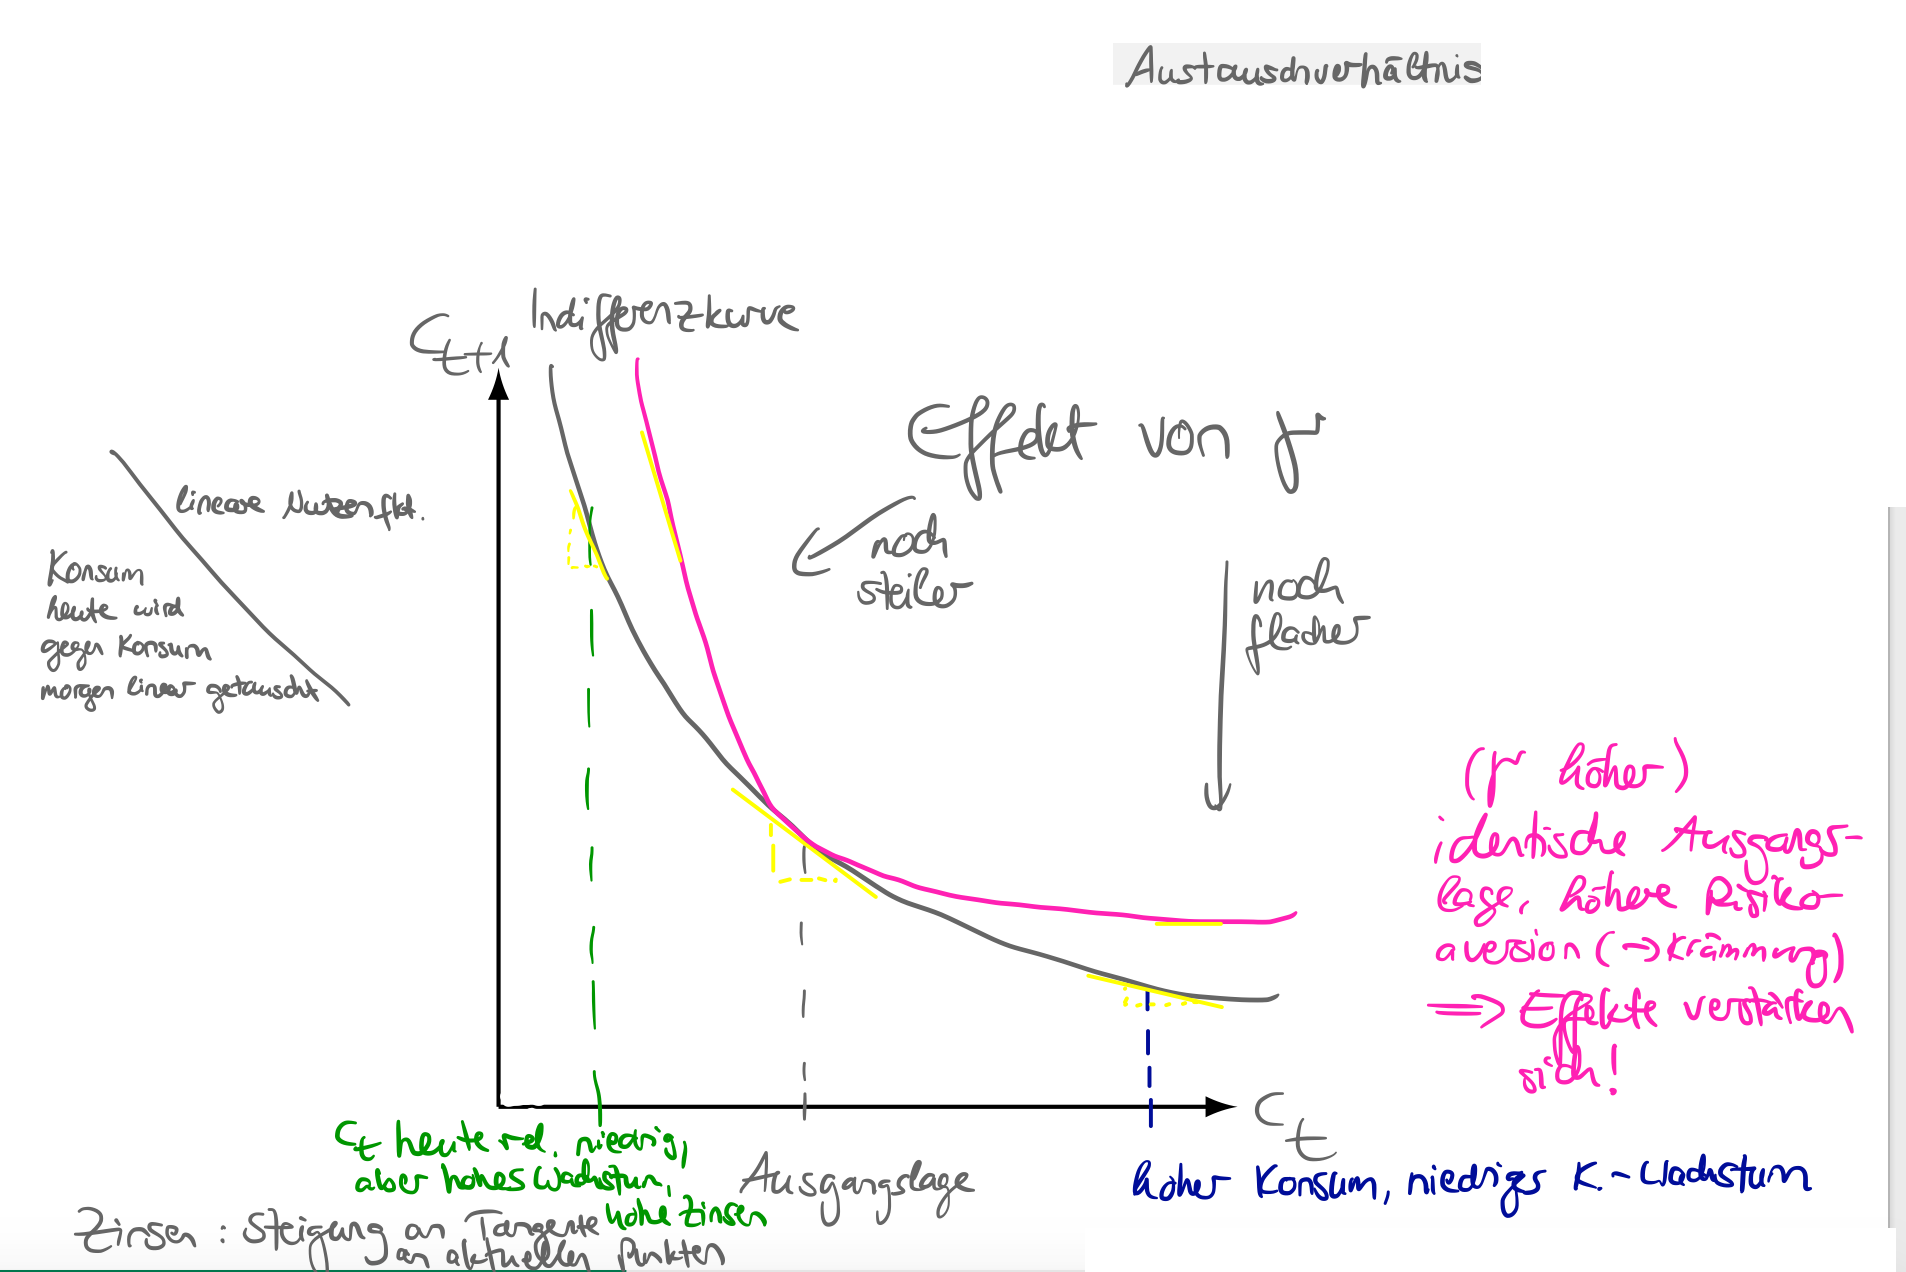 Austauschverhältnis
Indifferenzkurve
C_{t+1}
Effekt von γ
lineare Nutzenfkt.
noch
steiler
Konsum
heute wird
gegen Konsum
morgen linear getauscht
noch
flacher
(γ höher)
identische Ausgangs-
lage, höhere Risiko-
aversion (→ Krümmung)
⇒ Effekte verstärken
sich!
C_t
C_t heute rel. niedrig,
aber hohes Wachstum,
hohe Zinsen
Ausgangslage
hoher Konsum, niedriges K.-Wachstum
Zinsen: Steigung an Tangente
an aktuellen Punkten